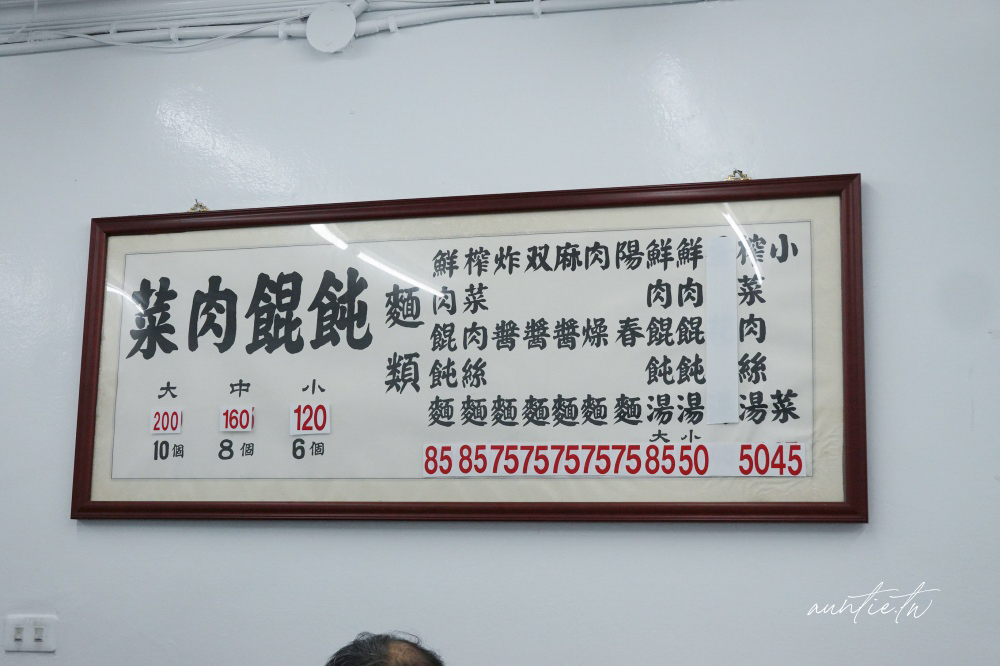 菜肉餛飩
大 中 小
200 160 120
10個 8個 6個
麵類
鮮肉餛飩麵 85
榨菜肉絲麵 85
炸醬麵 75
双醬麵 75
麻醬麵 75
肉燥麵 75
陽春麵 75
鮮肉餛飩湯 大 85
鮮肉餛飩湯 小 50
榨菜肉絲湯 50
小菜 45
auntie.tw